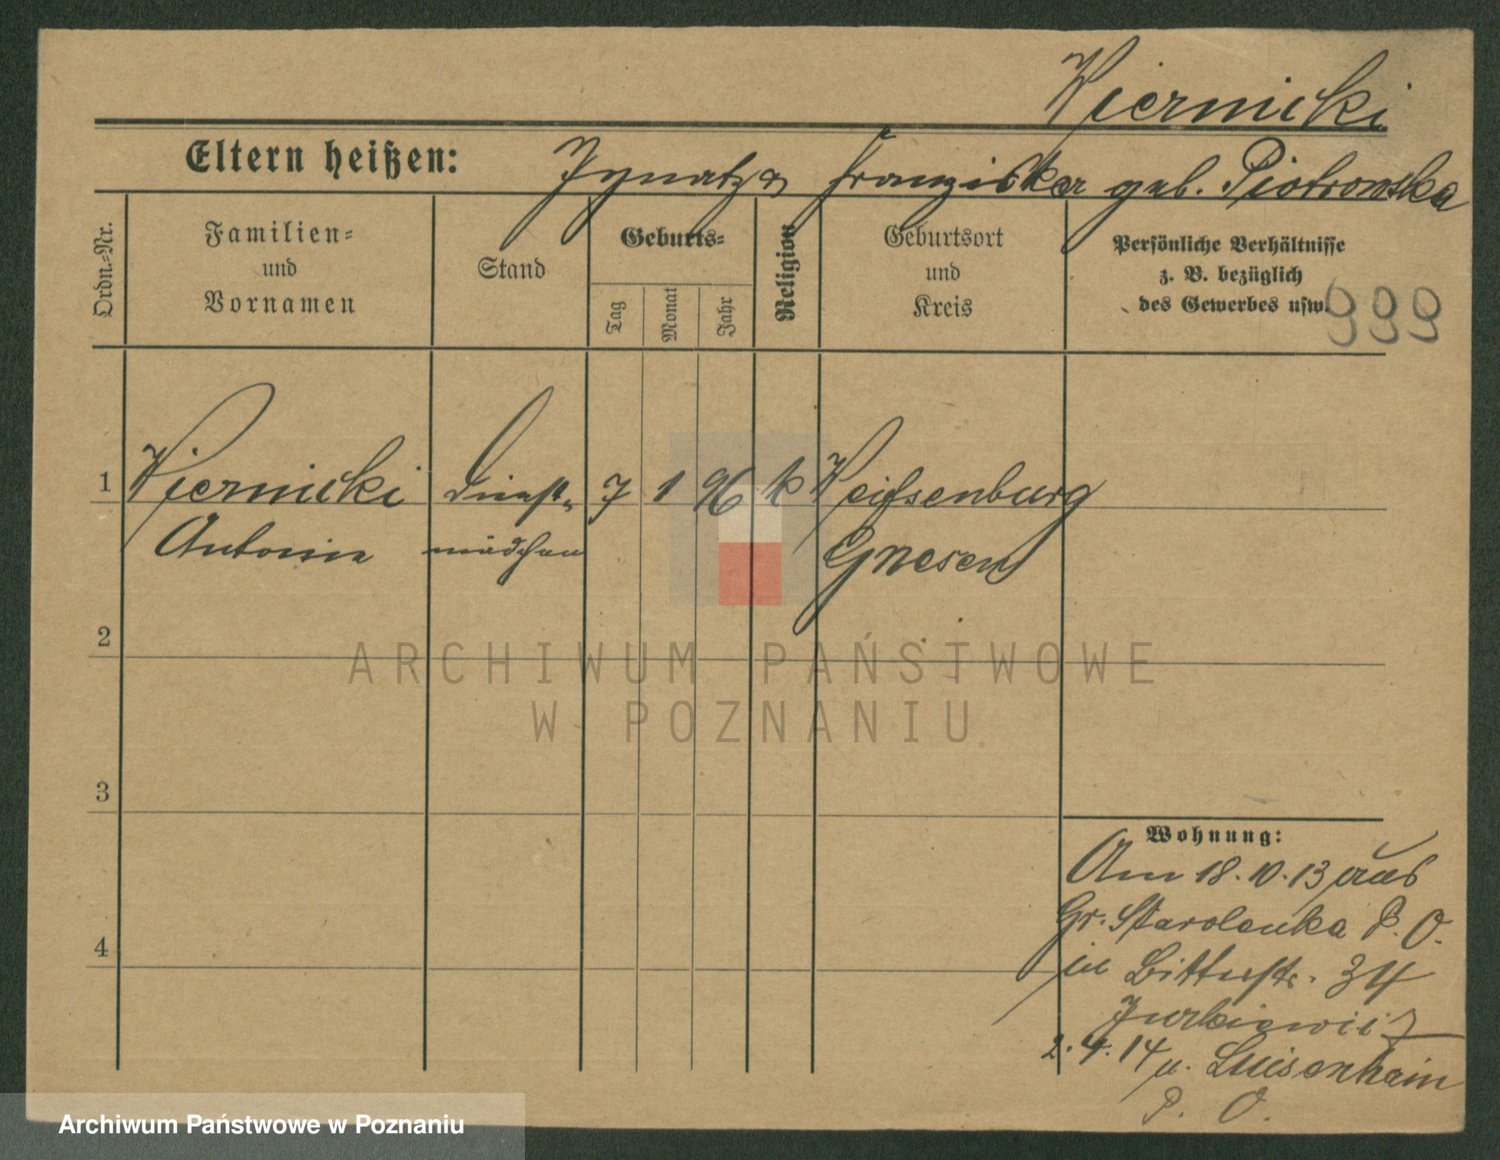 Wiernicki
Eltern heißen: Ignatz u Franziska geb. Piotrowska
Ordn.-Nr.
Familien-
und
Vornamen
Stand
Geburts-
Tag
Monat
Jahr
Religion
Geburtsort
und
Kreis
Persönliche Verhältnisse
z. B. bezüglich
des Gewerbes usw.
999
1 Wiernicki Dienst- 7 1 96 k Weißenburg
Antonie mädchen Gnesen
2
3
4
Wohnung:
Am 18.10.13 aus
Gr. Starolenka P. O.
in Bitterstr. 34
Jurkiewicz
2.4.14 n. Luisenhain
P. O.
ARCHIWUM PAŃSTWOWE
W POZNANIU
Archiwum Państwowe w Poznaniu